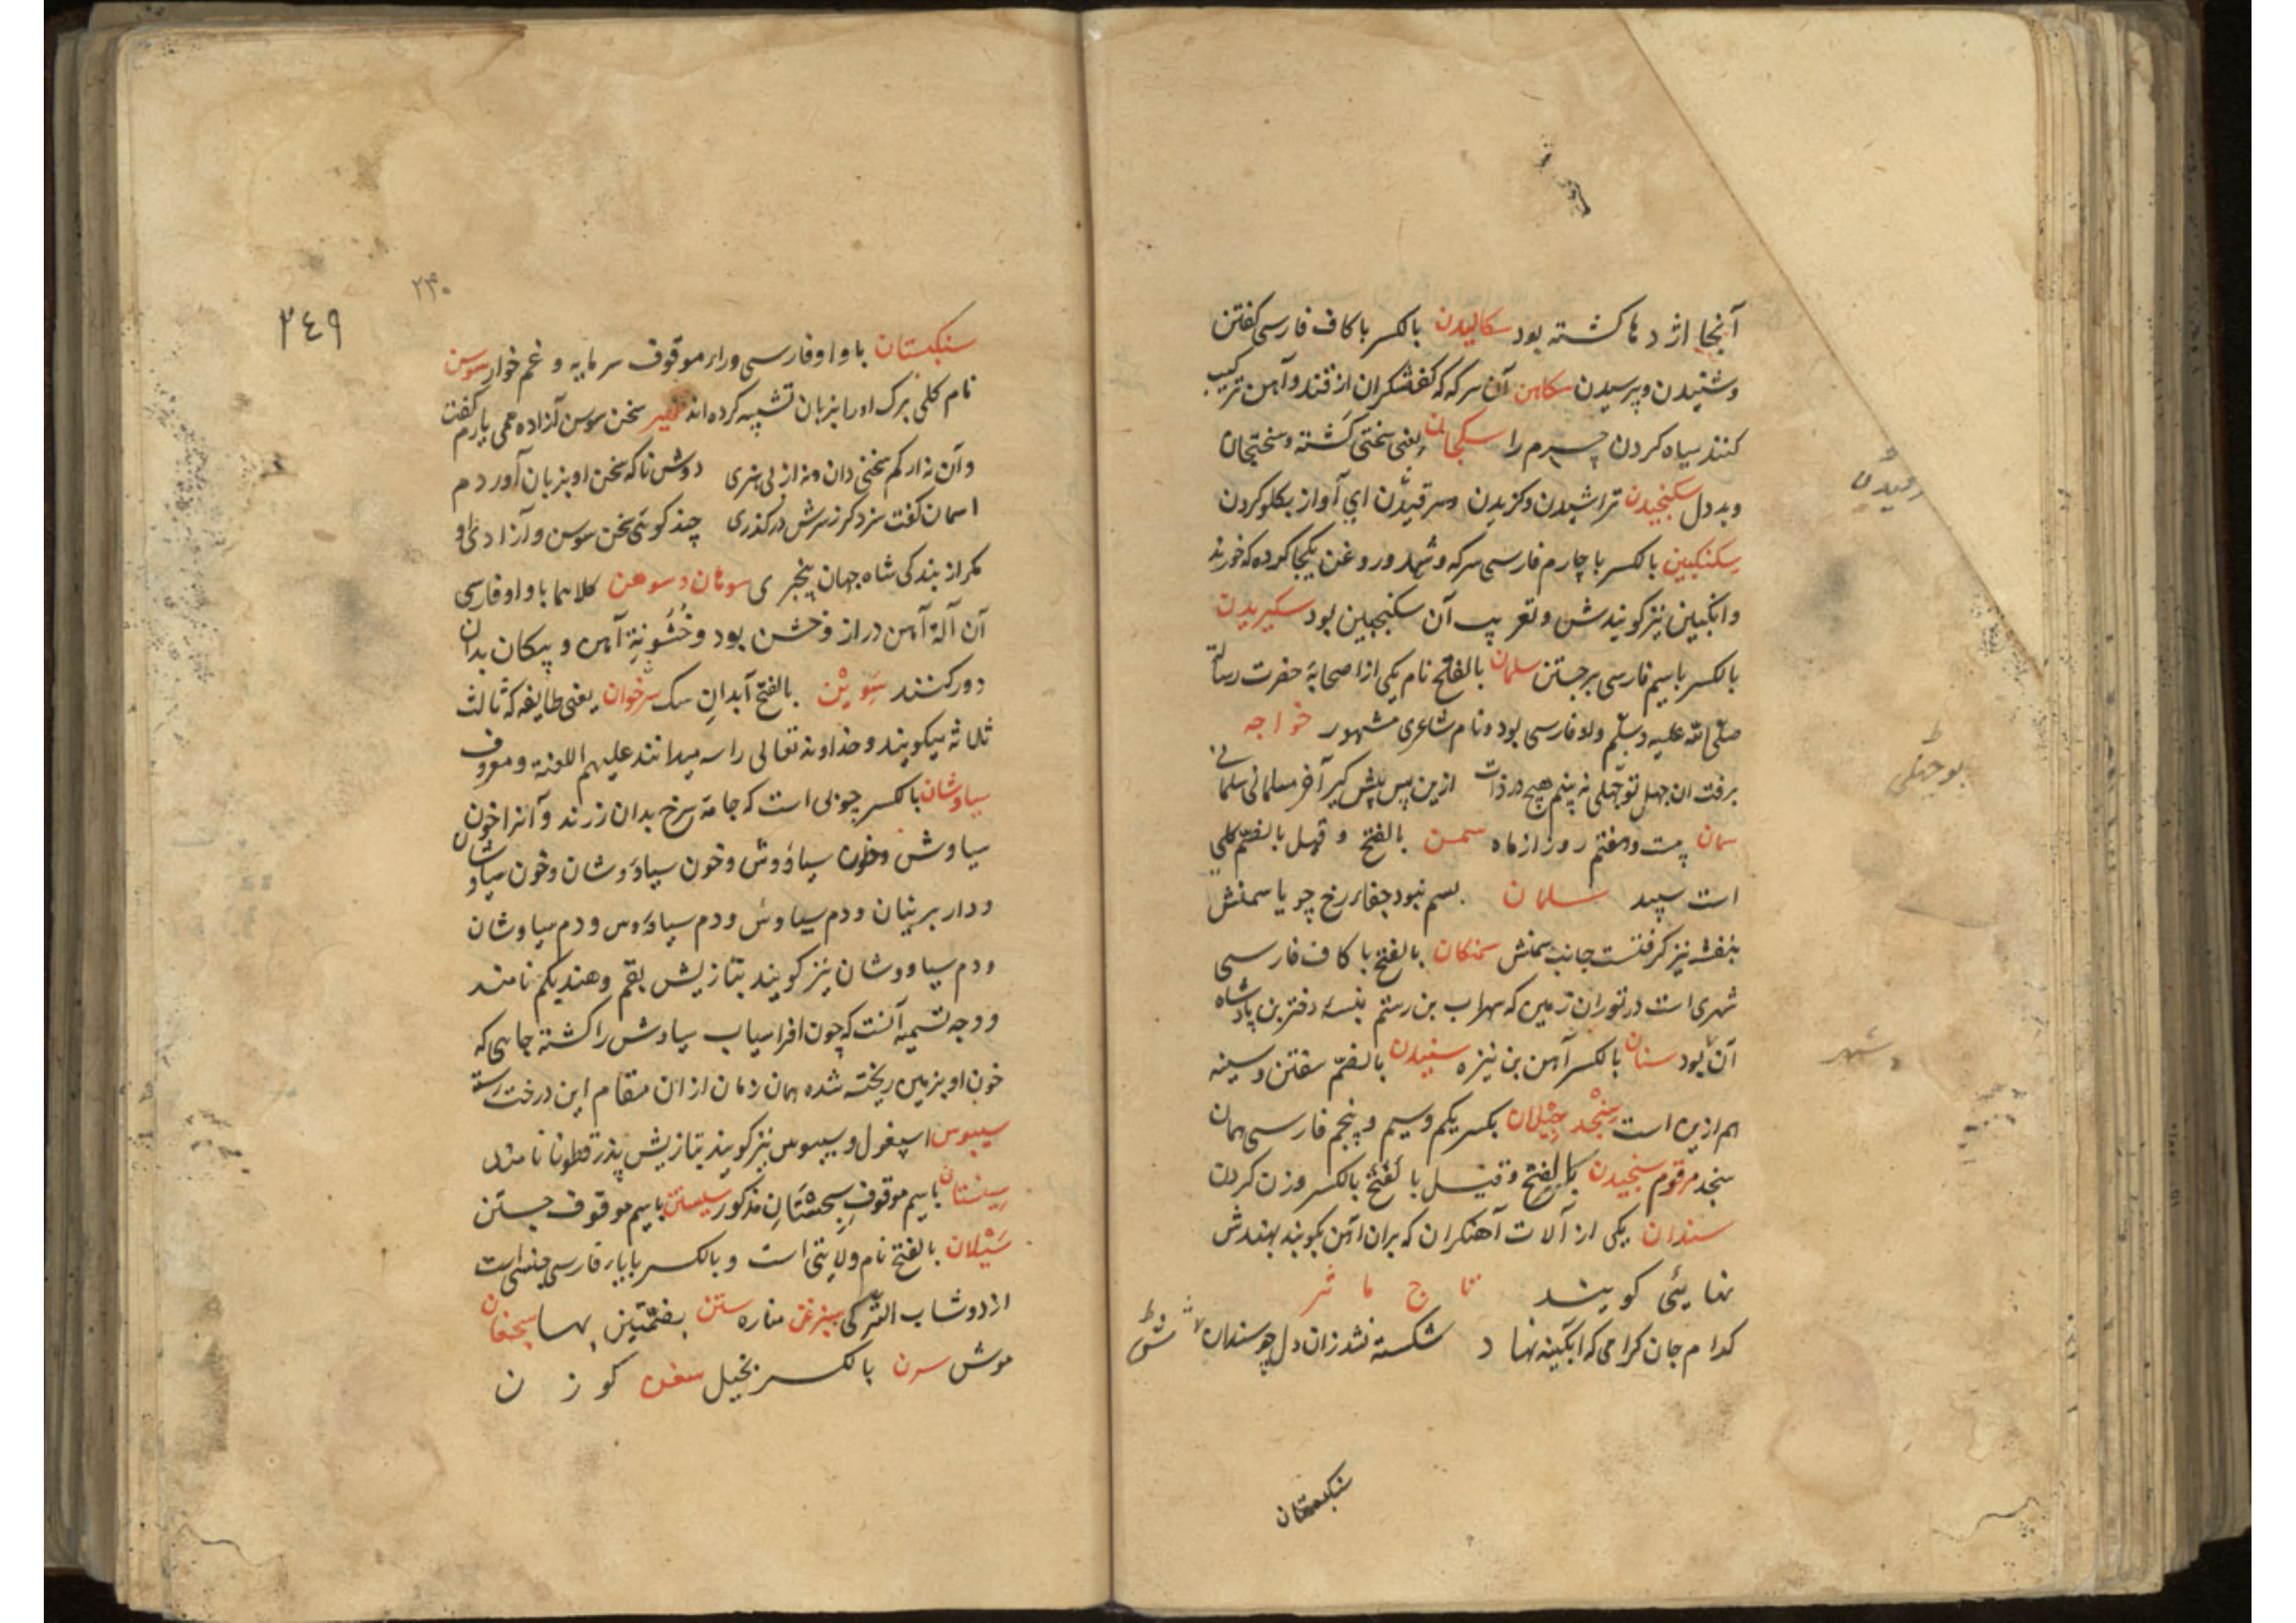 آنجا اژدها کشته بود سکالیدن بالکسر با کاف فارسی گفتن
و شنیدن و پرسیدن سکاهن آن سرکه که کفشگران از قند و آهن ترکیب
کنند سیاه کردن چرم را سکجان یعنی سختی کشته و سختیجان
و بد دل سکنجیدن تراشیدن و گزیدن و سرفیدن ای آواز بگلو کردن
سکنکبین بالکسر با چارم فارسی سرکه و شهد و روغن یکجا کرده که خورند
و انکبین نیز گویندش و تعریب آن سکنجبین بود سکیزیدن
بالکسر با سیم فارسی برجستن سلمان بالفتح نام یکی از اصحابهٔ حضرت رسالة
صلّی الله علیه وسلّم ولو فارسی بود و نام شاعری مشهور خواجه
برفت ان جهل تو جهلی نه بینم هیچ در ذات ازین پس پیش گیر آخر مسلمانی سلمانی
سمان بیست و هفتم روز از ماه سمن بالفتح و قیل بالضم گلی
است سپید سلمان بسم نبود جفای رخ چو یاسمنش
بنفشه نیز گرفتست جانب سمنش سمنکان بالفتح با کاف فارسی
شهری است در توران زمین که سهراب بن رستم نبسهٔ دختر بن پادشاه
آن بود سنان بالکسر آهن بن نیزه سنبیدن بالضم سفتن و سینه
هم ازین است سنجد جیلان بکسر یکم و سیم و پنجم فارسی همان
سنجد مرقوم سنجیدن بالفتح و قیل با لفتح بالکسر وزن کردن
سندان یکی از آلات آهنکران که بران آهن بکوبند بهندش
نهایئی گویند تاج ماثر
کدام جان گرامی که آبگینه نهاد شکسته نشد زان دل چو سندان
سنکبستان
بوجهلی
شهر
۳۴۹
۲۳۰
سنکبستان با واو فارسی و راء موقوف سرمایه و غم خوار سوسن
نام گلی برک او را بزبان تشبیه کرده اند ظهیر سخن سوسن آزاده همی یارم گفت
و آن نه از کم سخنی دان و نه از بی هنری دوش ناکه سخن او بزبان آوردم
اسمان گفت سزد گر ز سرش درگذری چند کوئی سخن سوسن و آزادی او
مکر از بندگی شاه جهان بیخبری سوهان و سوهن کلاهما با واو فارسی
آن آلهٔ آهن دراز و خشن بود و خشونة آهن و پیکان بدان
دور کنند سویین بالفتح آبدان سک سرخوان یعنی طایفه که ثالث
ثلاثه میگویند و خداوند تعالی را سه میدانند علیهم اللعنة و معروف
سیاوشان بالکسر چوبی است که جامه سرخ بدان رزند و آنرا خون
سیاوش و خون سیاؤوش و خون سیاؤوشان و خون سیاوشان
و دار برنیان و دم سیاوش و دم سیاؤس و دم سیاوشان
و دم سیاووشان نیز گویند بتازیش بقم و هند یکم نامند
و وجه تسمیه آنست که چون افراسیاب سیاوش را کشته جایی که
خون او بزمین ریخته شده همان زمان از ان مقام این درخت رسته
سیبوس اسپغول و سیبوس نیز گویند بتازیش بذر قطونا نامند
سیستان با سیم موقوف سجستان مذکور سیستن با سیم موقوف جستن
سیلان بالفتح نام ولایتی است و بالکسر با یاء فارسی جنسی است
از دوشاب الترکی سبزغن مناره ستن بضمتین بها سیجغان
موش سرن بالکسر بخیل سغن کوزن